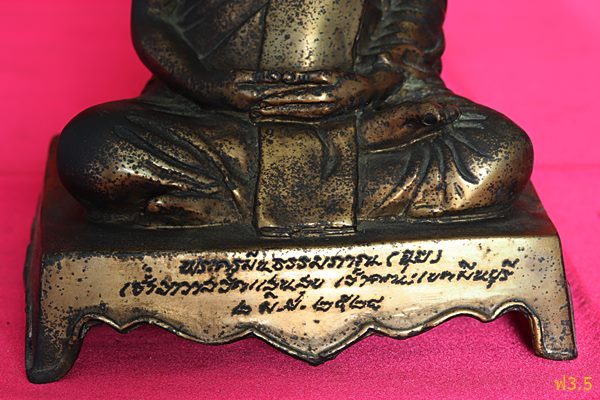 พระครูมีนธรรมภาณ (นุช)
เจ้าอาวาสวัดแสนสุข เจ้าคณะเขตมีนบุรี
๒ มิ.ย. ๒๕๒๘
ฟ3.5